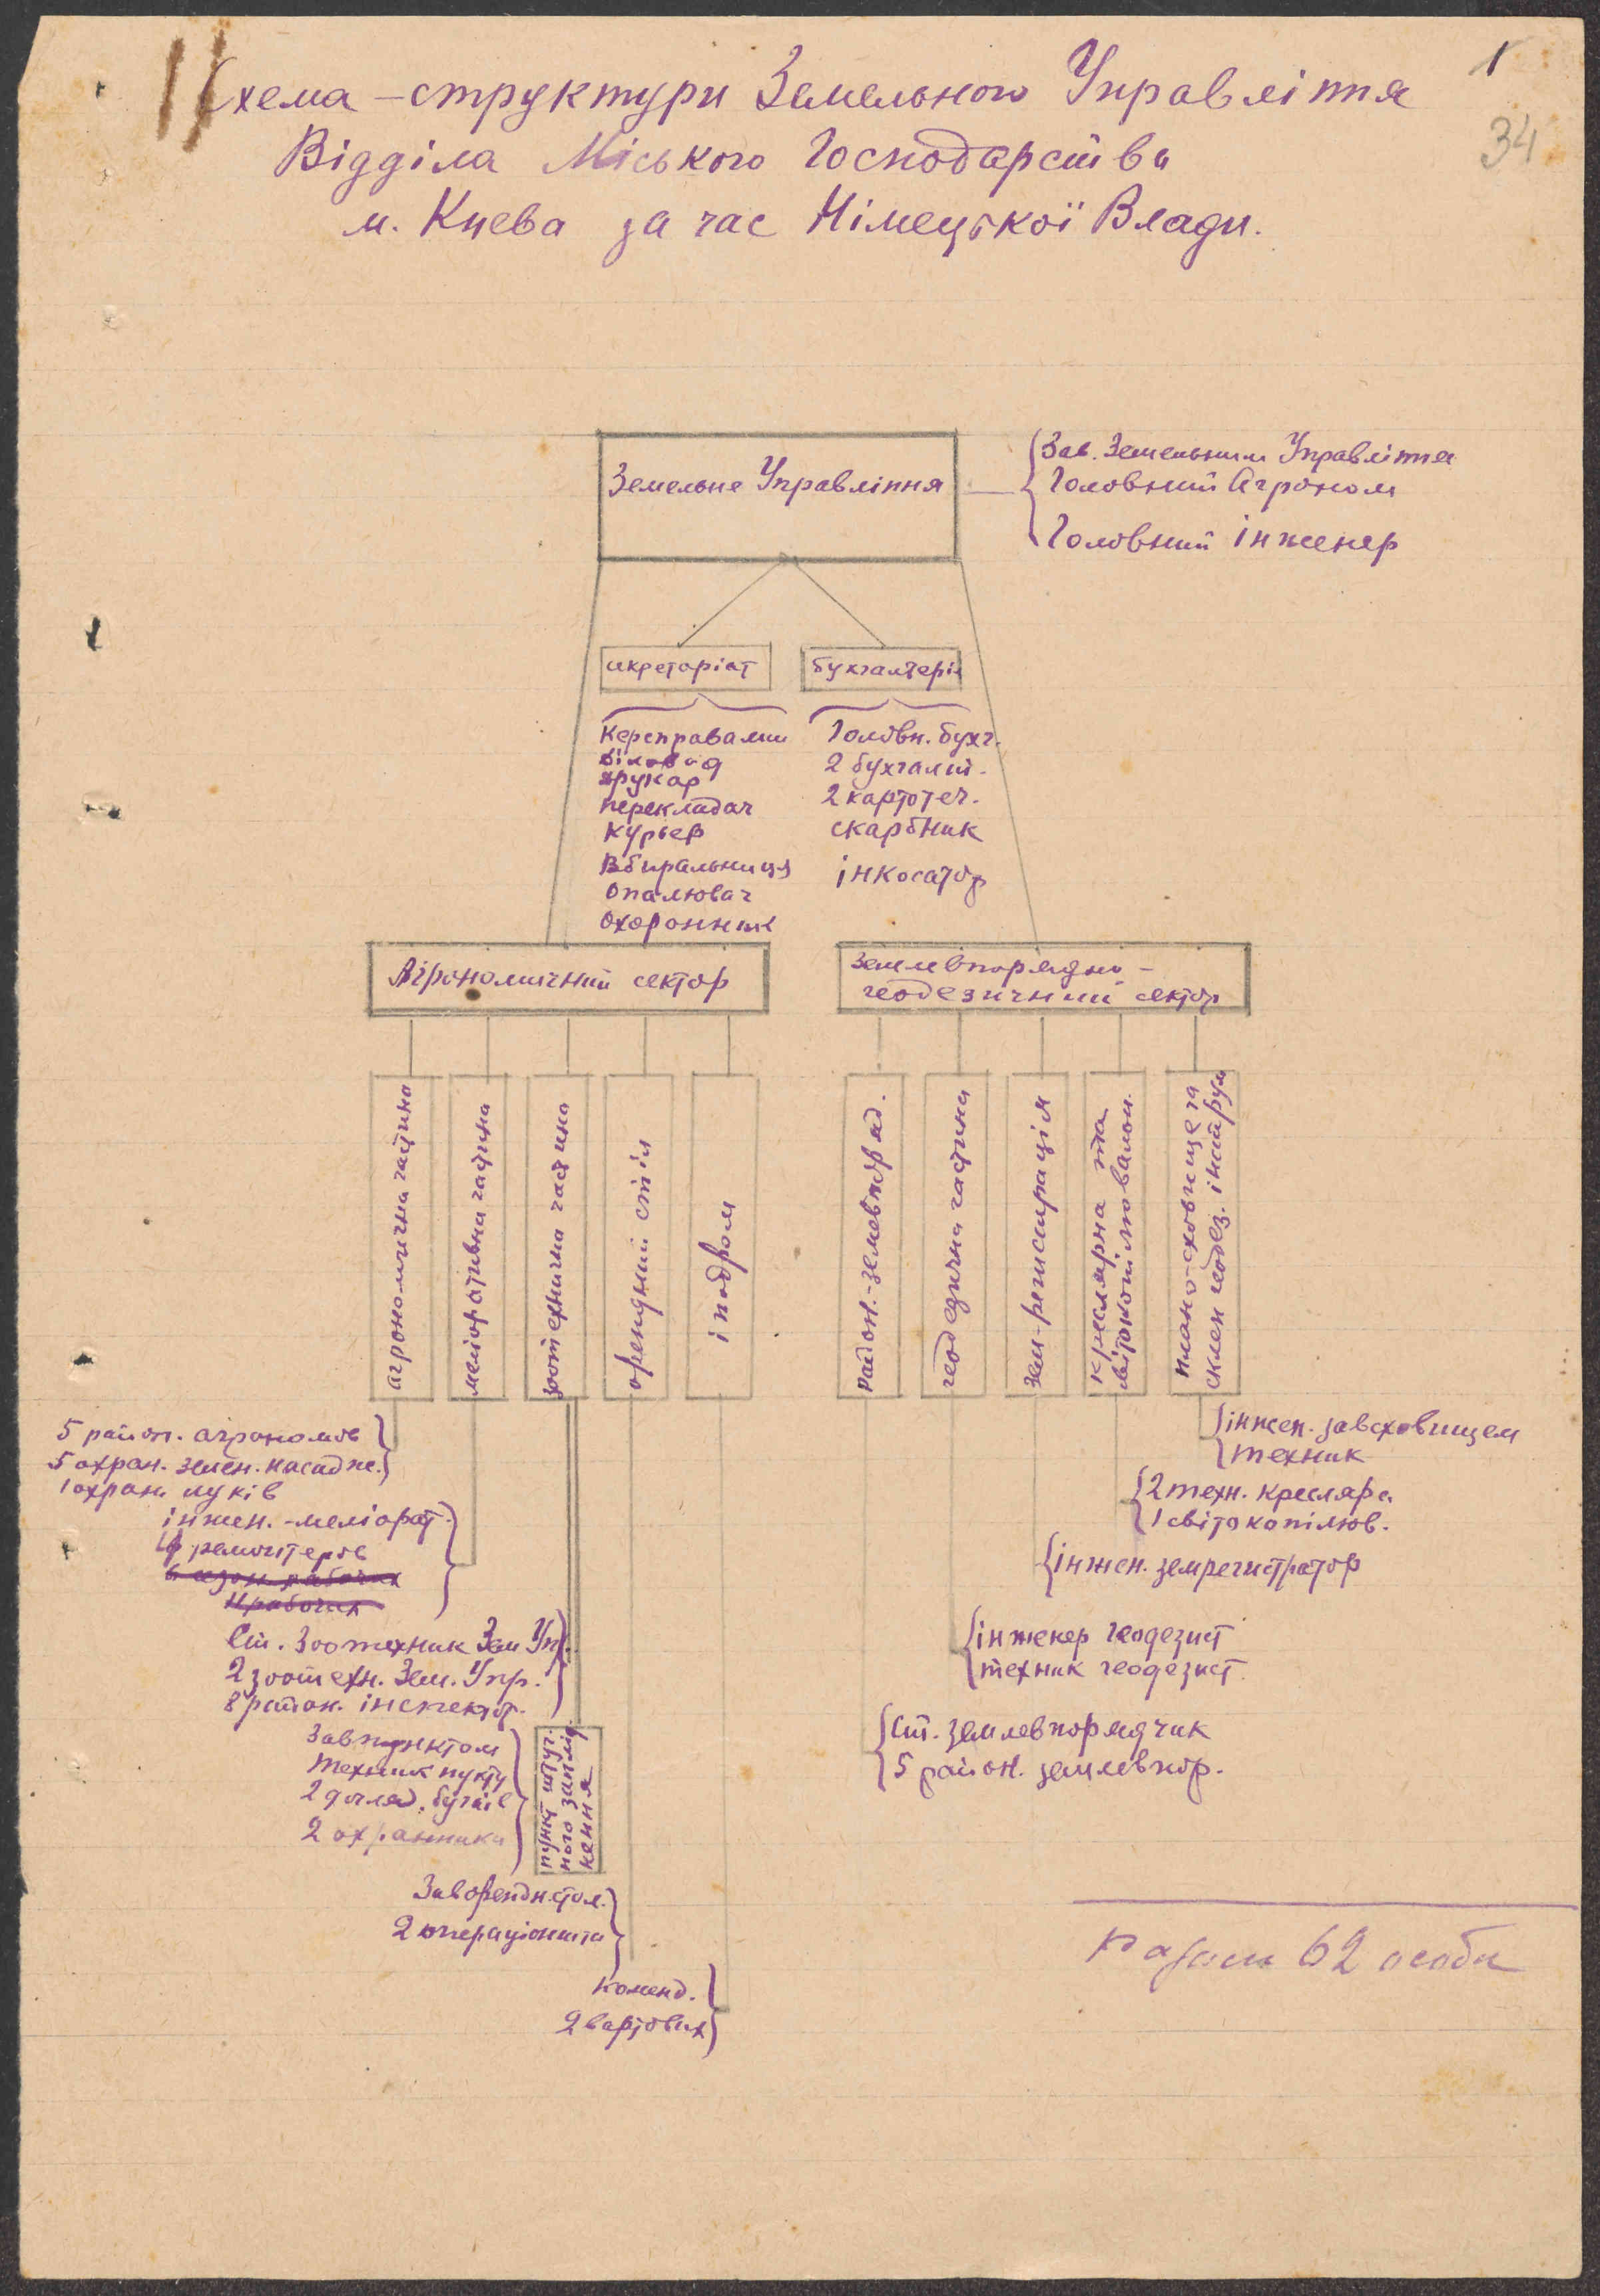 1
34
Схема – структури Земельного Управління
Відділа Міського Господарства
м. Києва за час Німецької Влади.
Земельне Управління
Зав. Земельним Управління
Головний Агроном
Головний інженер
секретаріат
бухгалтерія
Керсправами
діловод
друкар
перекладач
Курьер
Вбиральниця
Опалювач
Охоронник
Головн. бухг.
2 бухгалт.
2 картотеч.
скарбник
інкосатор
Агрономичний сектор
Землевпорядно –
геодезичний сектор
агрономична частина
меліоративна частина
зоотехнична частина
орендний стіл
іподром
район.-землевпоряд.
геодезична частина
Зем-регистрація
креслярна та
світокопіловальн.
плано-сховище та
склеп геодез. інструм
5 район. агрономов
5 охран. зелен. насадже.
1 охран. луків
інжен. -меліорат.
4 ремонтеров
6 сезон. рабочих
рабочих
Ст. Зоотехник Зем Упр.
2 зоотехн. Зем. Упр.
8 район. інспектор.
Завпунктом
техник пункту
2 догляд. бугаїв
2 охранника
пункт штуч-
ного заплід
кення
Заворендн. стол.
2 операціониста
Коменд.
2 вартових
інжен. завсховищем
техник
2 техн. кресляра
1 світокопілюв.
інжен. земрегистратор
інженер геодезист
техник геодезист
Ст. землевпорядчик
5 район. землевпор.
Разом 62 особи